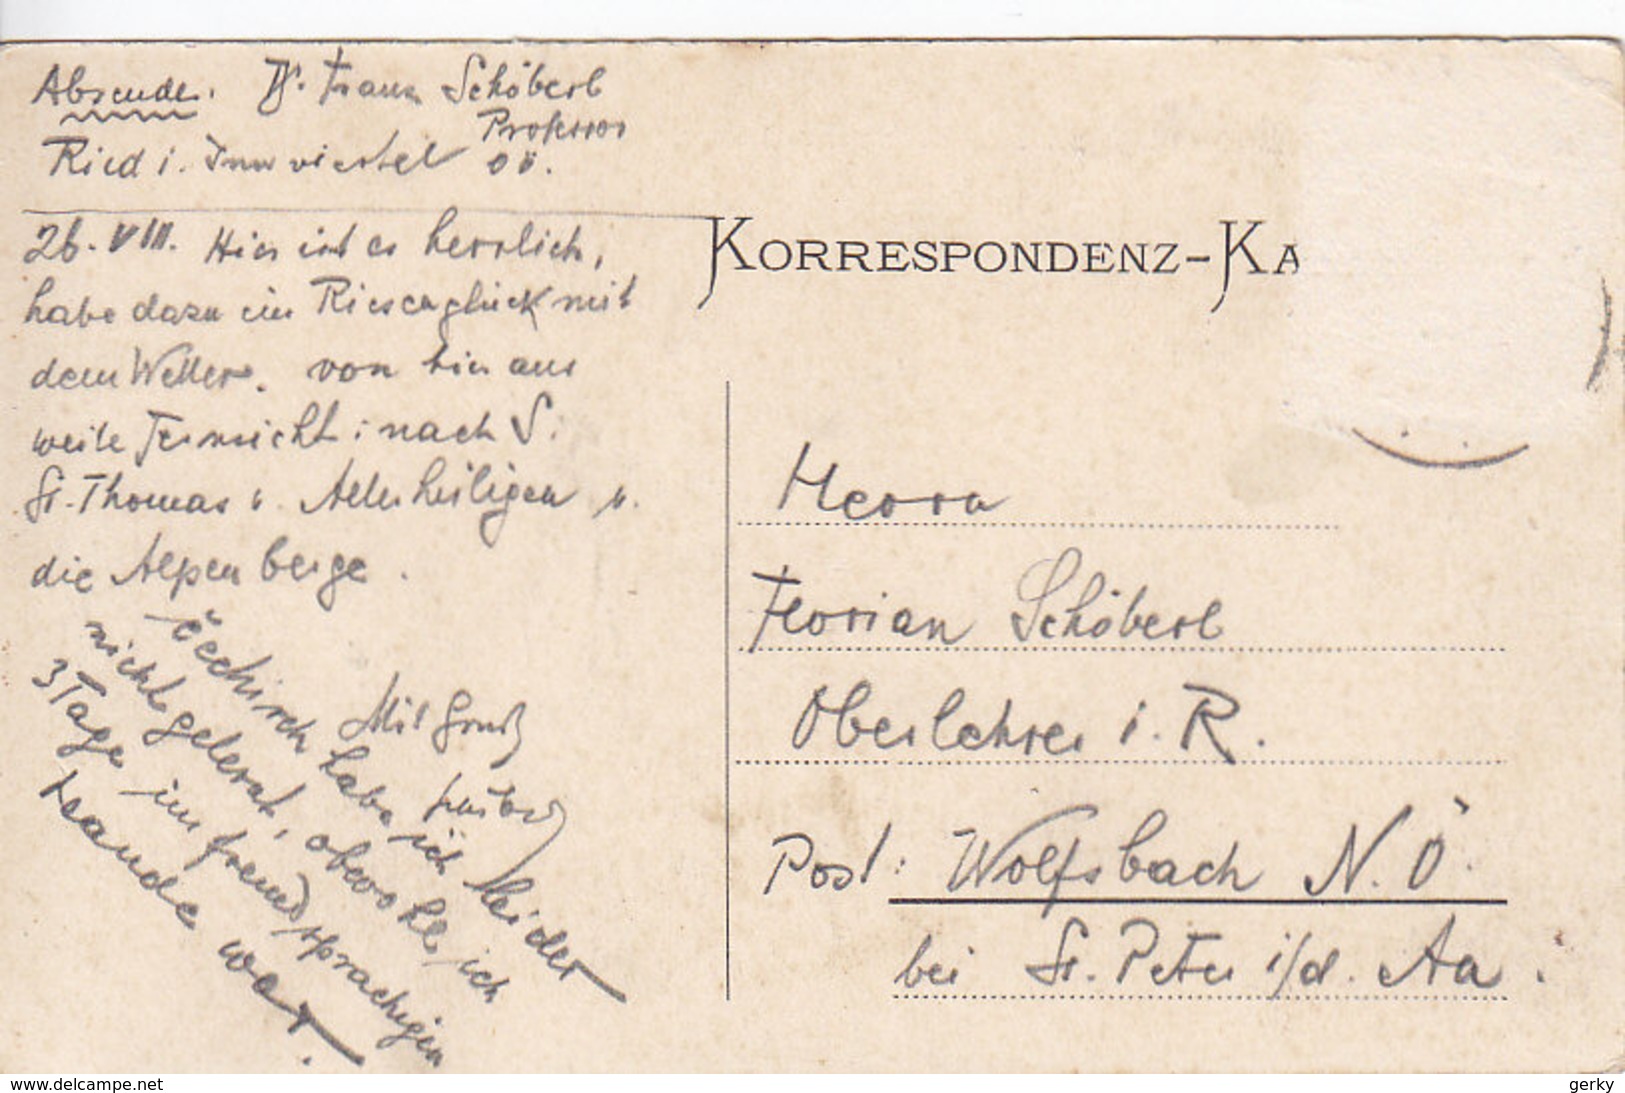 Absender. Dr. Franz Schöberl
Professor
Ried i. Innviertel OÖ.
26. VIII. Hier ist es herrlich,
habe dazu ein Riesenglück mit
dem Wetter. von hier aus
weite Fernsicht: nach S.
St. Thomas u. Allerheiligen u.
die Alpenberge.
Mit Gruß
čechisch habe ich leider
nicht gelernt, obwohl ich
3 Tage im fremdsprachigen
Lande war.
KORRESPONDENZ-KA
Herrn
Florian Schöberl
Oberlehrer i. R.
Post: Wolfsbach N. Ö.
bei St. Peter i/d. Aa.
www.delcampe.net
gerky